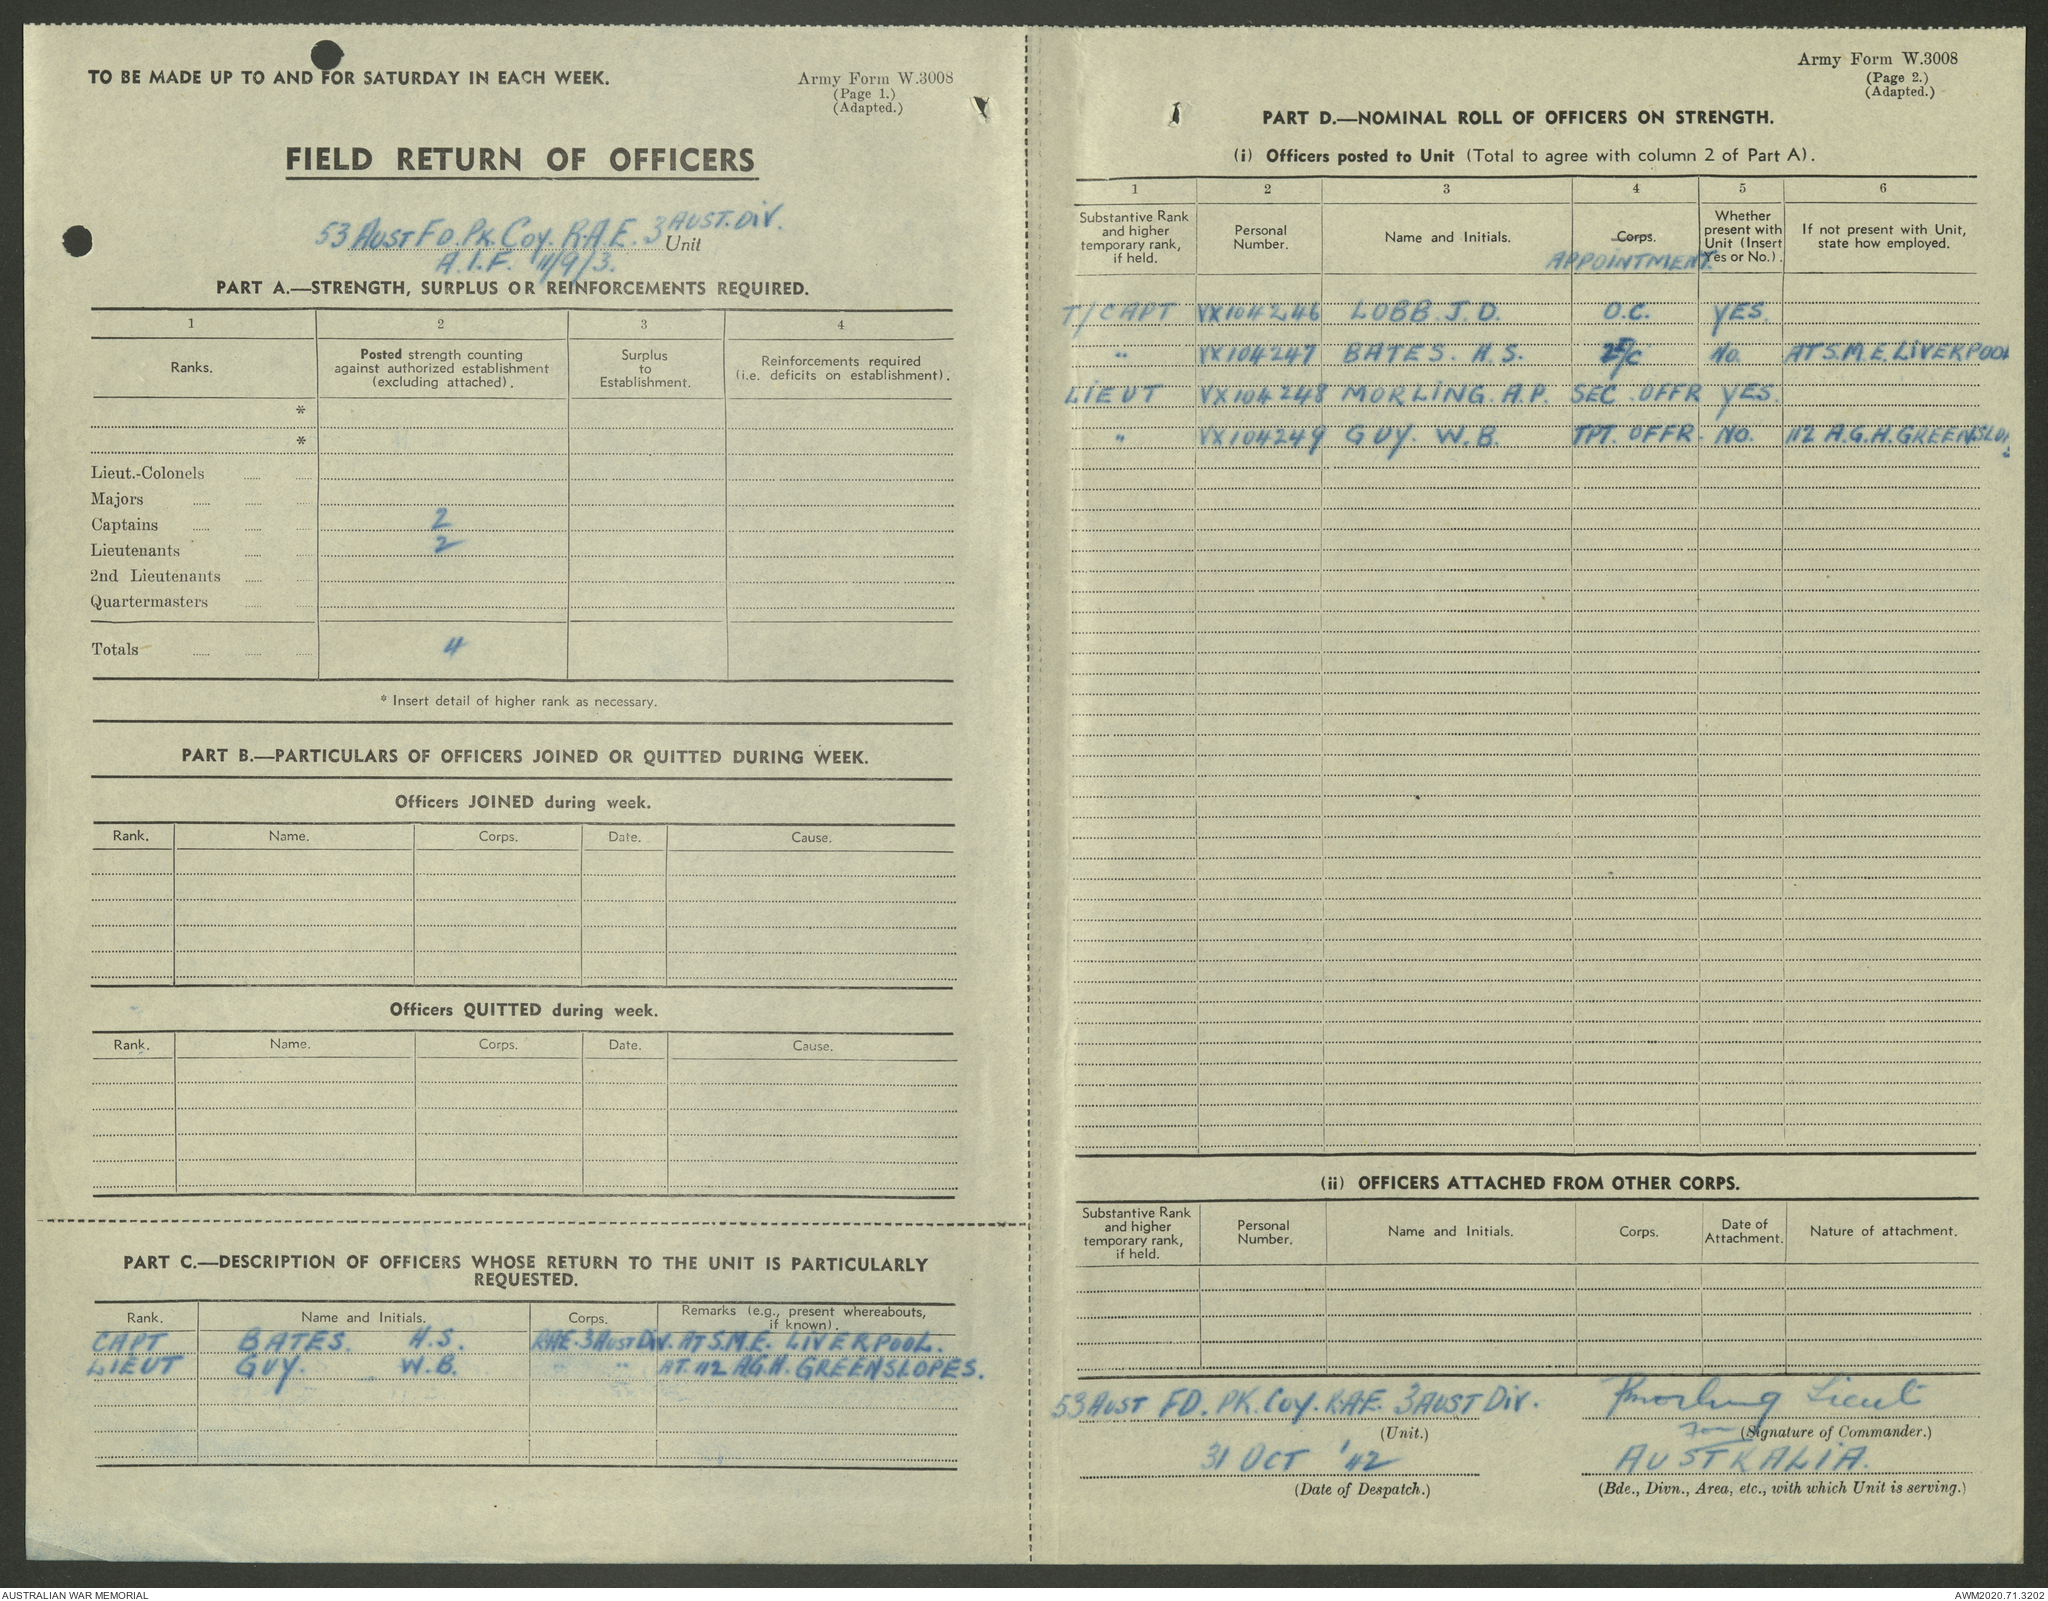 TO BE MADE UP TO AND FOR SATURDAY IN EACH WEEK.
Army Form W.3008
(Page 1.)
(Adapted.)
FIELD RETURN OF OFFICERS
53 AUST FD. PK. COY. R.A.E. 3 AUST. DIV.
Unit
A.I.F. 11/9/3.
PART A.—STRENGTH, SURPLUS OR REINFORCEMENTS REQUIRED.
1 2 3 4
Ranks. Posted strength counting against authorized establishment (excluding attached). Surplus to Establishment. Reinforcements required (i.e. deficits on establishment).
*
*
Lieut.-Colonels
Majors
Captains 2
Lieutenants 2
2nd Lieutenants
Quartermasters
Totals 4
* Insert detail of higher rank as necessary.
PART B.—PARTICULARS OF OFFICERS JOINED OR QUITTED DURING WEEK.
Officers JOINED during week.
Rank. Name. Corps. Date. Cause.
Officers QUITTED during week.
Rank. Name. Corps. Date. Cause.
PART C.—DESCRIPTION OF OFFICERS WHOSE RETURN TO THE UNIT IS PARTICULARLY
REQUESTED.
Rank. Name and Initials. Corps. Remarks (e.g., present whereabouts, if known).
CAPT BATES. H.S. RAE. 3 AUST DIV. AT S.M.E. LIVERPOOL.
LIEUT GUY. W.B. " " AT 112 A.G.H. GREENSLOPES.
Army Form W.3008
(Page 2.)
(Adapted.)
PART D.—NOMINAL ROLL OF OFFICERS ON STRENGTH.
(i) Officers posted to Unit (Total to agree with column 2 of Part A).
1 2 3 4 5 6
Substantive Rank and higher temporary rank, if held. Personal Number. Name and Initials. Corps. APPOINTMENT. Whether present with Unit (Insert Yes or No.). If not present with Unit, state how employed.
T/CAPT VX104246 LOBB. J.D. O.C. YES.
" VX104247 BATES. H.S. 2I/C NO. AT S.M.E. LIVERPOOL
LIEUT VX104248 MORLING. A.P. SEC. OFFR YES.
" VX104249 GUY. W.B. TPT. OFFR. NO. 112 A.G.H. GREENSLOPES
(ii) OFFICERS ATTACHED FROM OTHER CORPS.
Substantive Rank and higher temporary rank, if held. Personal Number. Name and Initials. Corps. Date of Attachment. Nature of attachment.
53 AUST FD. PK. COY. R.A.E. 3 AUST DIV.
(Unit.)
Morling Lieut
for (Signature of Commander.)
31 OCT '42
(Date of Despatch.)
AUSTRALIA.
(Bde., Divn., Area, etc., with which Unit is serving.)
AUSTRALIAN WAR MEMORIAL
AWM2020.71.3202